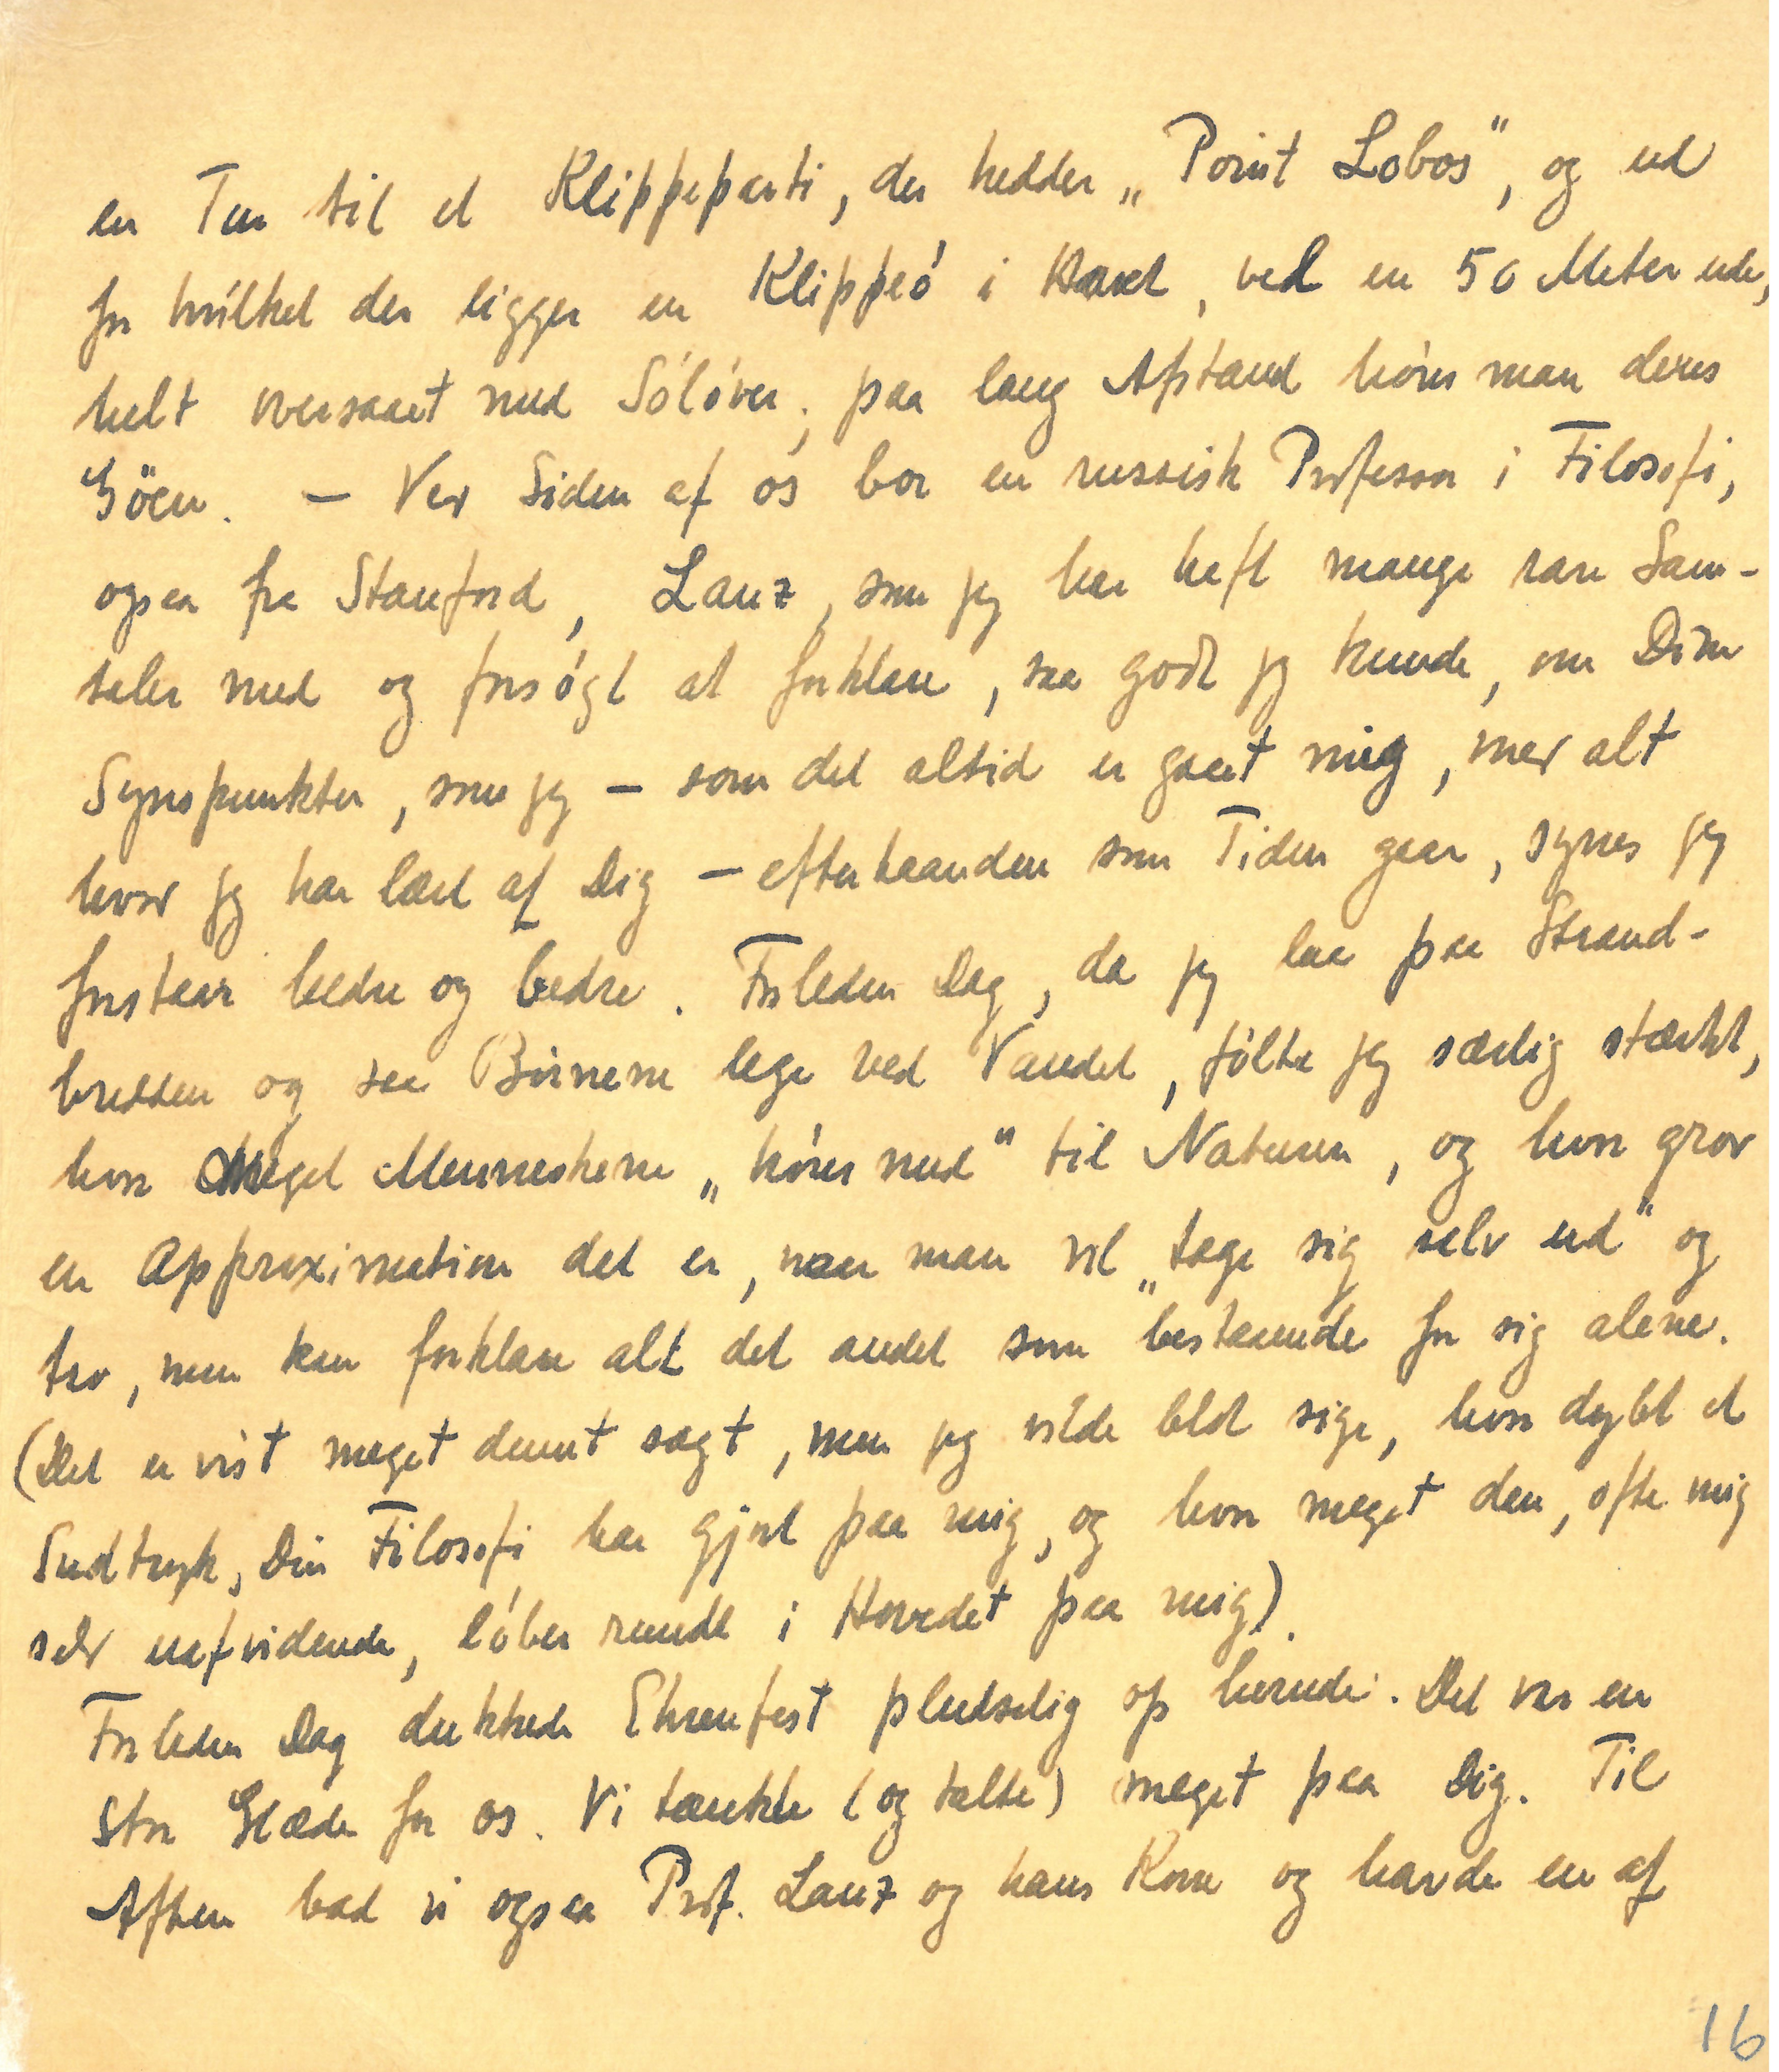 en Tur til et Klippeparti, der hedder „Point Lobos“, og ud
for hvilket der ligger en Klippeó i Havet, vel en 50 Meter ude,
helt oversaaet med Sóló́ver; paa lang Afstand hó́rer man deres
Göen. – Ved Siden af os bor en russisk Professor i Filosofi,
ogsaa fra Stanford, Lanz, som jeg har haft mange rare Sam-
taler med og forsó́gt at forklare, saa godt jeg kunde, om Dine
Synspunkter, som jeg – som det altid er gaaet mig, med alt
hvad jeg har lært af Dig – efterhaanden som Tiden gaar, synes jeg
forstaar bedre og bedre. Forleden Dag, da jeg laa paa Strand-
bredden og saa Bó́rnene lege ved Vandet, fó́lte jeg særlig stærkt,
hvor meget Menneskene „hó́rer med“ til Naturen, og hvor grov
en Approximation det er, naar man vil „tage sig selv ud“ og
tro, man kan forklare alt det andet som bestaaende for sig alene.
(Det er vist meget dumt sagt, men jeg vilde blot sige, hvor dybt et
Indtryk, Din Filosofi har gjort paa mig, og hvor meget den, ofte mig
selv uafvidende, ló́ber rundt i Hovedet paa mig).
Forleden Dag dukkede Ehrenfest pludselig op herude. Det var en
stor Glæde for os. Vi tænkte (og talte) meget paa Dig. Til
Aften bad vi ogsaa Prof. Lanz og hans Kone og havde en af
16